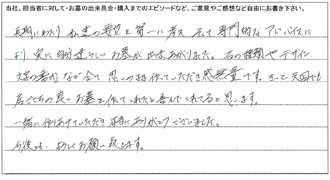 当社、担当者に対して・お墓の出来具合・購入までのエピソードなど、ご意見やご感想など自由にお書き下さい。
長期にわたり 私達の要望を第一に考え そして専門的なアドバイスに
より 実に素晴しいお墓が出来あがりました。石の種類やデザイン
文字の書体など全て 思いの他 仕上げていただき感無量です。きっと天国でも
居ごこちの良いお墓を作ってくれたと喜んでくれてると思います。
一緒に作りあげていただき 本当にありがとうございました。
今後とも よろしくお願い致します。